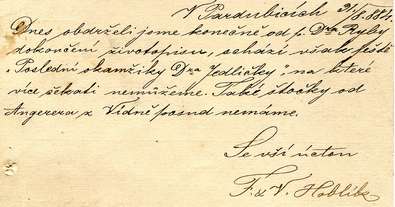 V Pardubicích 21/8. 884.
Dnes obdrželi jsme konečně od p. Dra Ryby
dokončení životopisu, schází však ještě
„Poslední okamžiky Dra Jedličky", na které
více čekati nemůžeme. Také štočky od
Angerera z Vídně posud nemáme.
Se vší úctou
F. & V. Hoblík